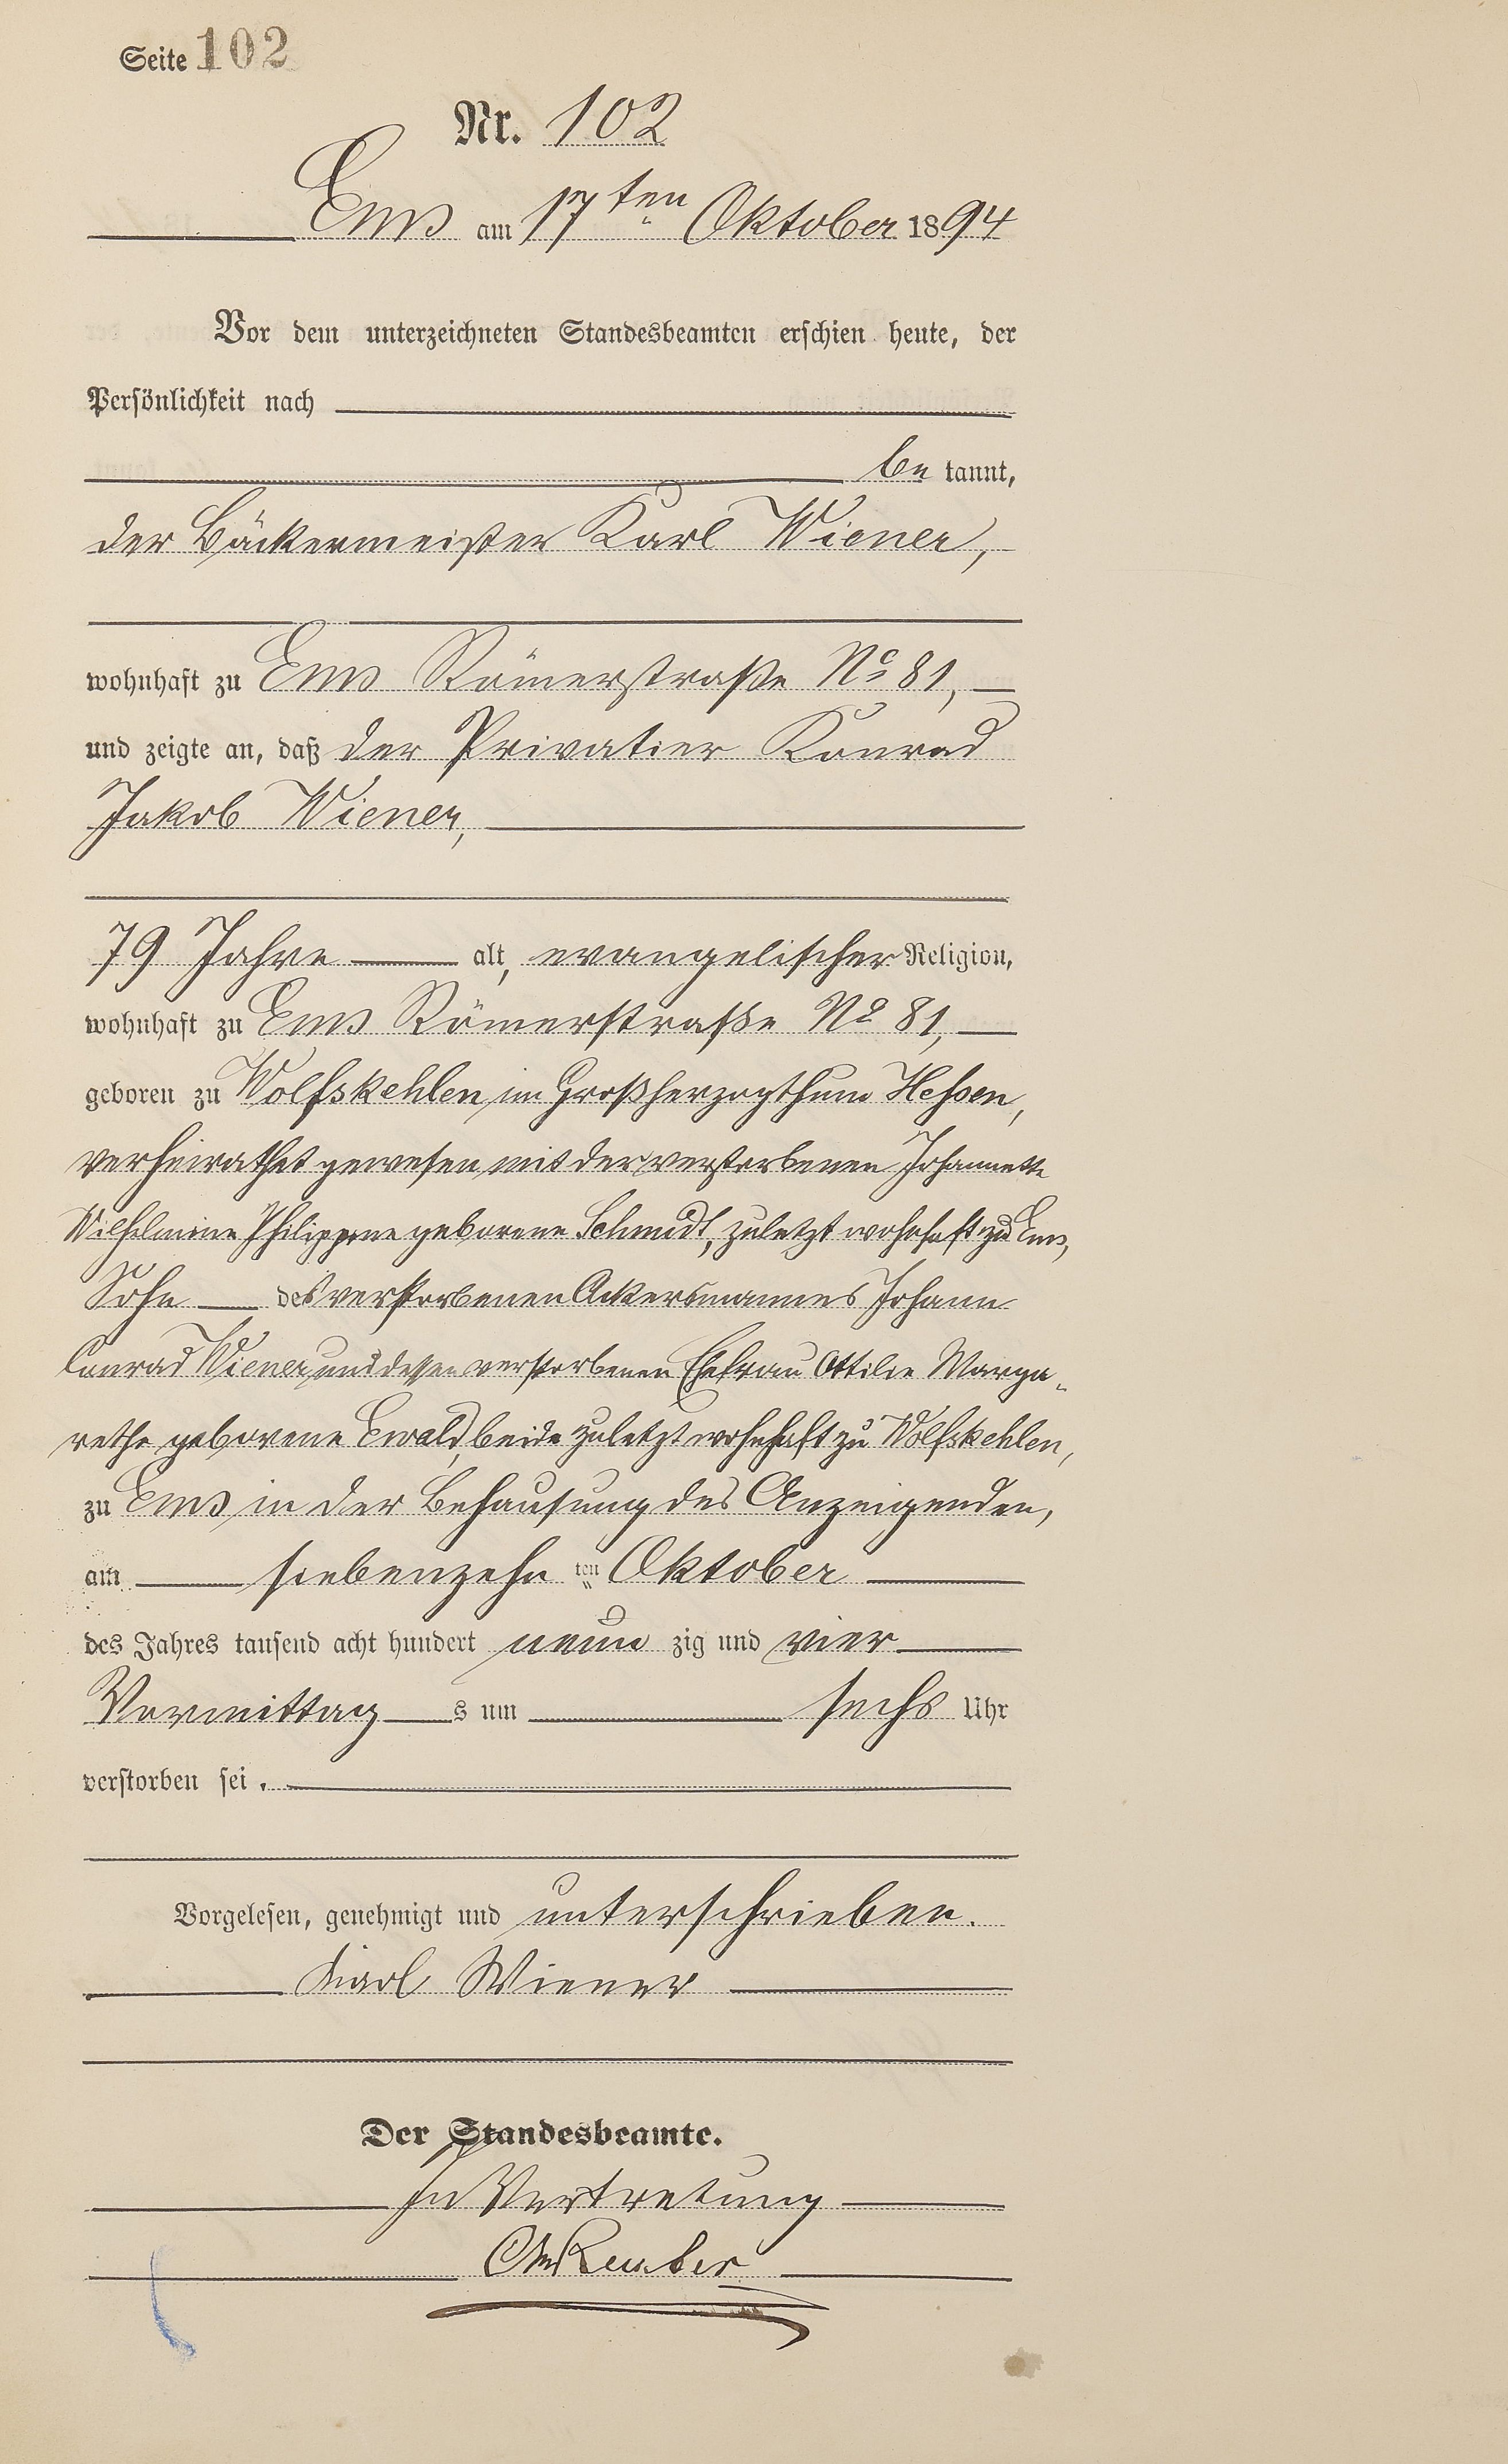 Seite 102
Nr. 102
Ems am 17ten Oktober 1894
Vor dem unterzeichneten Standesbeamten erschien heute, der
Persönlichkeit nach
be kannt,
der Bäckermeister Karl Wiener,
wohnhaft zu Ems Römerstraße No 81,
und zeigte an, daß der Privatier Konrad
Jakob Wiener,
79 Jahre alt, evangelischer Religion,
wohnhaft zu Ems Römerstraße No 81,
geboren zu Wolfskehlen im Großherzogthum Hessen,
verheirathet gewesen mit der verstorbenen Johannette
Wilhelmine Philippine geborene Schmidt, zuletzt wohnhaft zu Ems,
Sohn des verstorbenen Ackersmannes Johann
Conrad Wiener und dessen verstorbenen Ehefrau Ottilie Marga-
rethe geborene Ewald, beide zuletzt wohnhaft zu Wolfskehlen,
zu Ems in der Behausung des Anzeigenden,
am siebenzehn ten Oktober
des Jahres tausend acht hundert neun zig und vier
Vormittag s um sechs Uhr
verstorben sei.
Vorgelesen, genehmigt und unterschrieben.
Karl Wiener
Der Standesbeamte.
In Vertretung